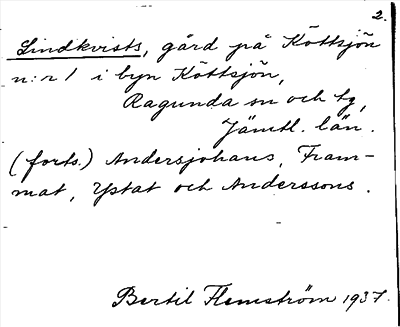 2.
Lindkvists, gård på Köttsjön
n:r 1 i byn Köttsjön,
Ragunda sn och tg,
Jämtl. län.
(forts.) Andersjohans, Fram-
mat, Ystat och Anderssons.
Bertil Flemström 1937.